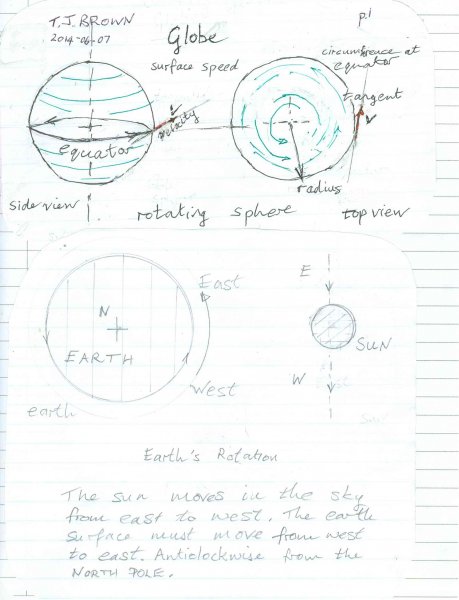 T.J. BROWN
2014-06-07
p.1
Globe
surface speed
circumference at
equator
tangent
V
velocity
V
equator
radius
side view
rotating sphere
top view
East
E
N
EARTH
SUN
W
West
earth
Earth's Rotation
The sun moves in the sky
from east to west. The earth
surface must move from west
to east. Anticlockwise from the
NORTH POLE.